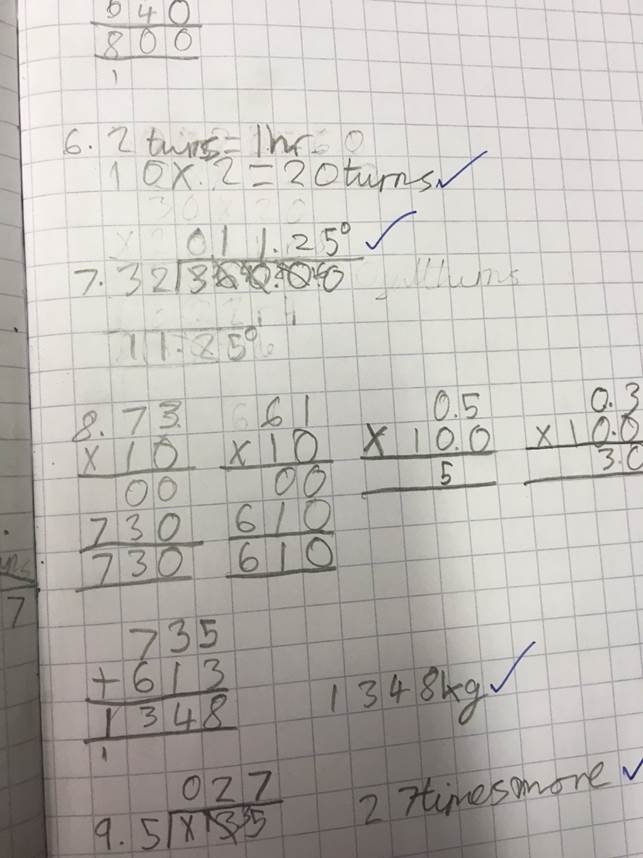 540
800
1
6. 2 turns = 1hr
10 x 2 = 20 turns
011.25°
7. 32 360.00
11.25°
8. 73 61 0.5 0.3
x 10 x 10 x 10.0 x 10.0
00 00 5 3.0
730 610
730 610
7
735
+ 613
1348 1348kg
1
027
9. 5 135 27 times more